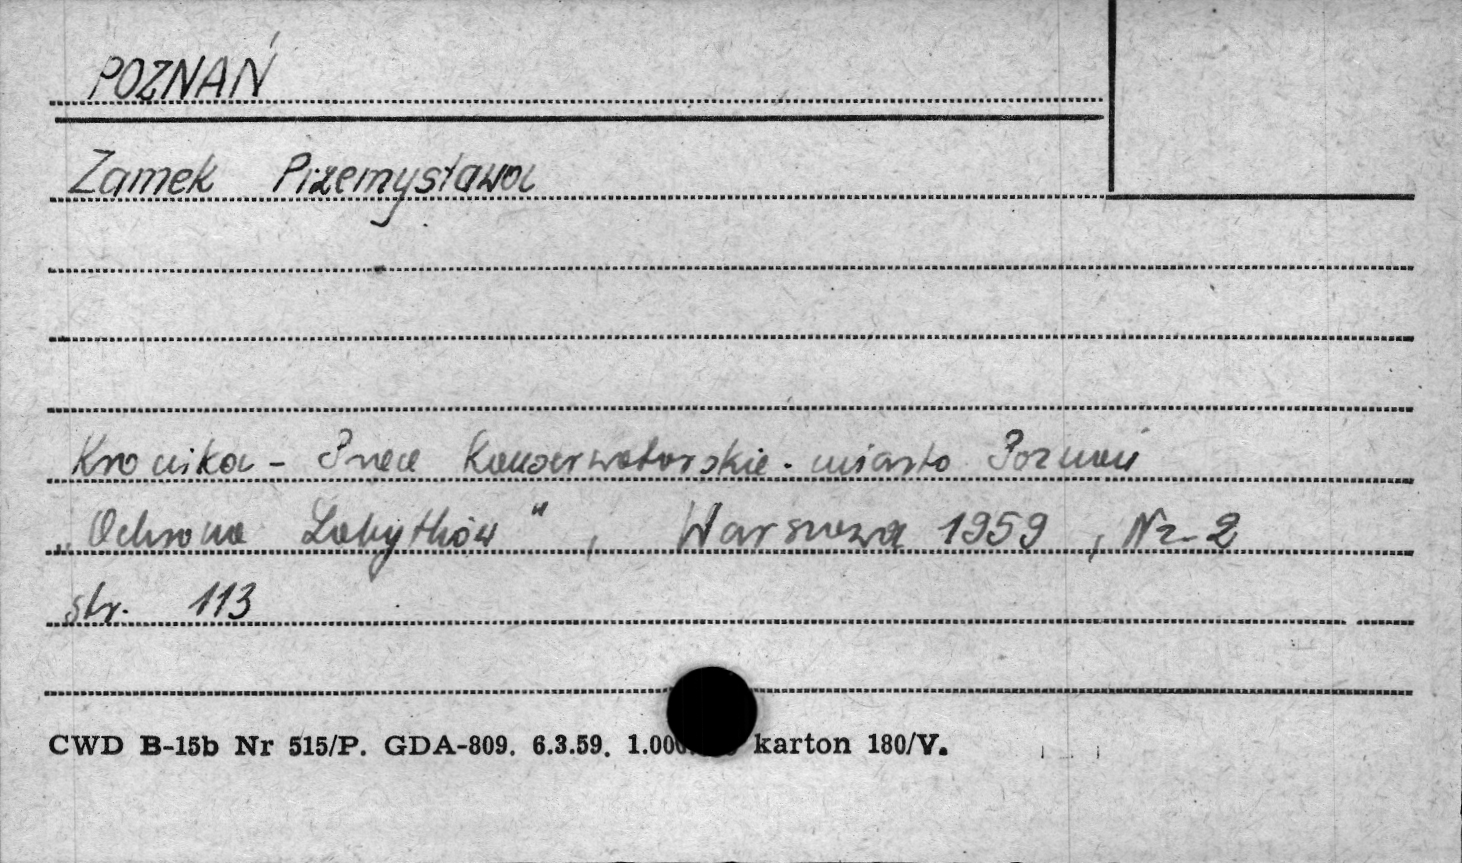 POZNAŃ
Zamek Przemysława
Kronika - Prace Konserwatorskie - miasto Poznań
„Ochrona Zabytków", Warszawa 1959, Nr 2
str. 113
CWD B-15b Nr 515/P. GDA-809. 6.3.59. karton 180/V.